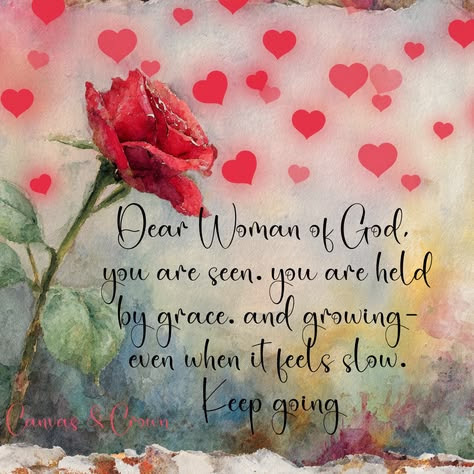 Dear Woman of God,
you are seen. you are held
by grace. and growing-
even when it feels slow.
Keep going
Canvas & Crown